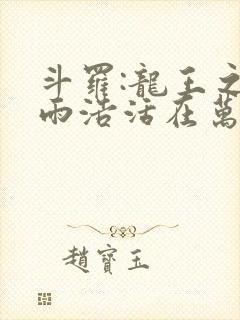 斗羅:龍王之
雨浩活在萬
趙寶玉